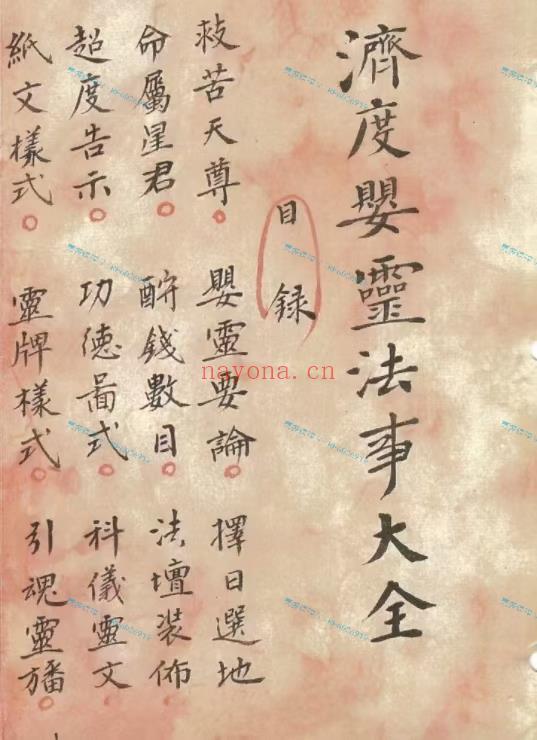 濟度嬰靈法事大全
目錄
救苦天尊 嬰靈要論 擇日選地
命屬星君 酧錢數目 法壇裝佈
超度告示 功德啚式 科儀靈文
紙文樣式 靈牌樣式 引魂靈旛
nayona.cn